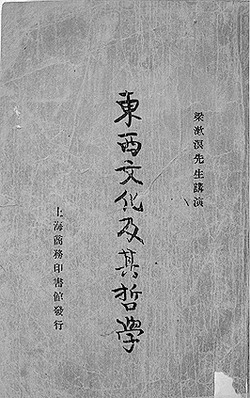 梁漱溟先生講演
東西文化及其哲學
上海商務印書館發行